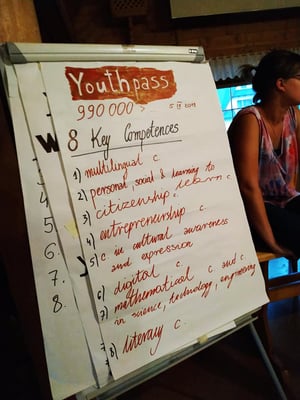 Youthpass
990 000 >
8 Key Competences
1) multilingual c.
2) personal, social & learning to
learn c.
3) citizenship c.
4) entrepreneurship c.
5) c. in cultural awareness
and expression
6) digital c.
7) mathematical c. and c.
in science, technology, engineering
8) literacy c.
W
4
5
6.
7.
8.